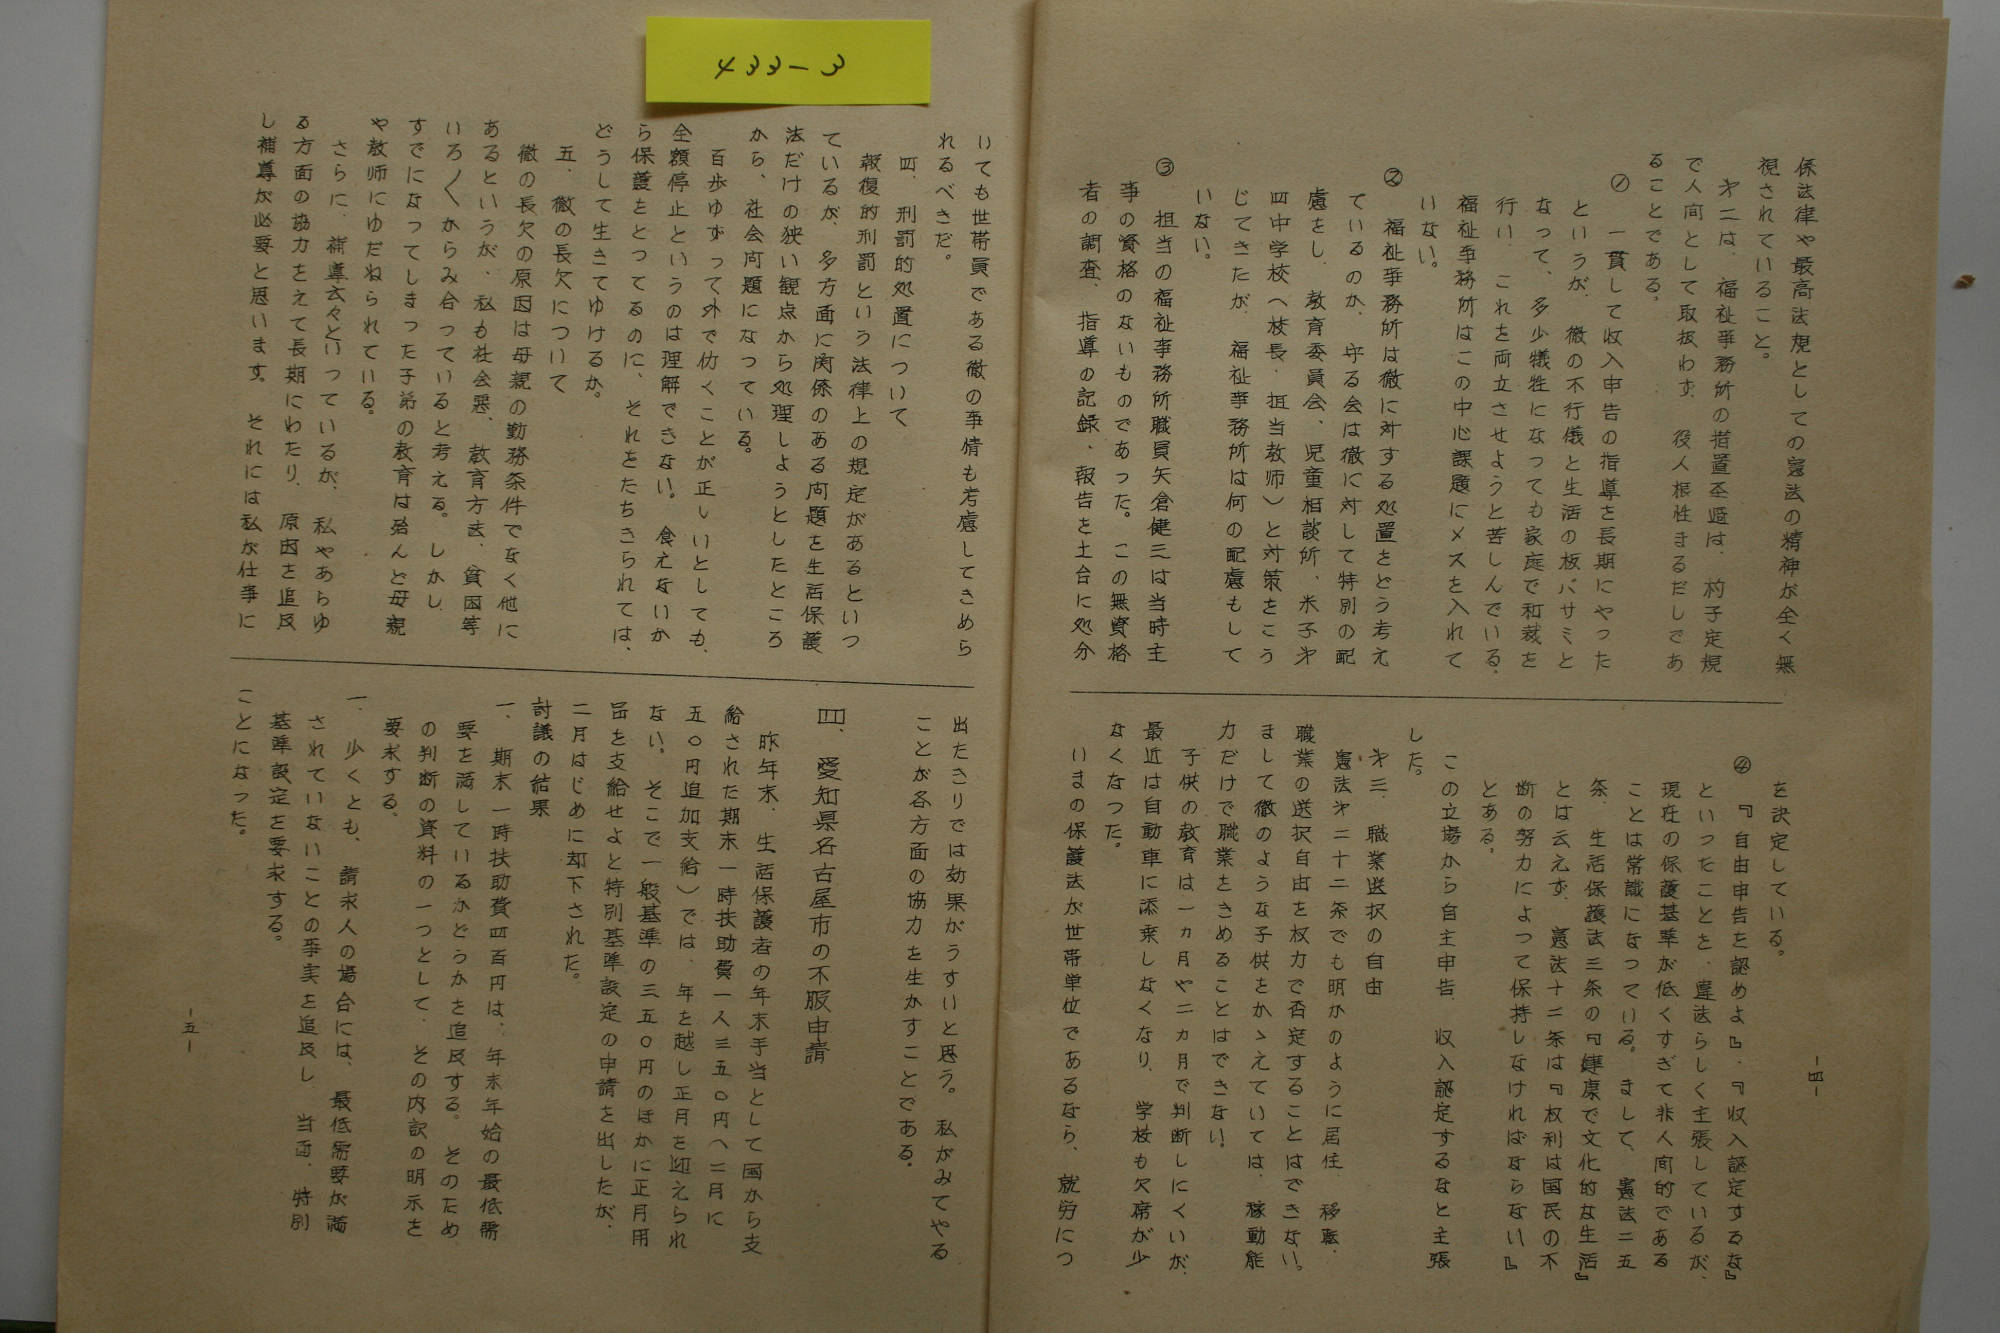 433-3
係法律や最高法規としての憲法の精神が全く無
視されていること。
才二は、福祉事務所の措置全過は、杓子定規
で人間として取扱わず、役人根性まるだしであ
ることである。
① 一貫して収入申告の指導を長期にやった
というが、徹の不行儀と生活の板バサミと
なって、多少犠牲になっても家庭で和裁を
行い、これを両立させようと苦しんでいる。
福祉事務所はこの中心課題にメスを入れて
いない。
② 福祉事務所は徹に対する処置をどう考え
ているのか、守る会は徹に対して特別の配
慮をし、教育委員会、児童相談所、米子才
四中学校(校長・担当教師)と対策をこう
じてきたが、福祉事務所は何の配慮もして
いない。
③ 担当の福祉事務所職員矢倉健三は当時主
事の資格のないものであった。この無資格
者の調査、指導の記録、報告を土台に処分
を決定している。
④ 『自由申告を認めよ』・『収入認定するな』
といったことを、違法らしく主張しているが、
現在の保護基準が低くすぎて非人間的である
ことは常識になっている。まして、憲法二五
条、生活保護法三条の『健康で文化的な生活』
とは云えず、憲法十二条は『权利は国民の不
断の努力によって保持しなければならない』
とある。
この立場から自主申告、収入認定するなと主張
した。
才三、職業选択の自由
憲法才二十二条でも明かのように居住、移転・
職業の选択自由を权力で否定することはできない。
まして徹のような子供をかゝえていては、稼動能
力だけで職業をきめることはできない。
子供の教育は一ヵ月や二ヵ月で判断しにくいが、
最近は自動車に添乗しなくなり、学校も欠席が少
なくなつた。
いまの保護法が世帯単位であるなら、就労につ
-四-
いても世帯員である徹の事情も考慮してきめら
れるべきだ。
四、刑罰的処置について
報復的刑罰という法律上の規定があるといっ
ているが、多方面に関係のある问題を生活保護
法だけの狭い観点から処理しようとしたところ
から、社会问題になっている。
百歩ゆずって外で仂くことが正しいとしても、
全額停止というのは理解できない。食えないか
ら保護をとってるのに、それをたちきられては、
どうして生きてゆけるか。
五、徹の長欠について
徹の長欠の原因は母親の勤務条件でなく他に
あるというが、私も社会悪、教育方法、貧困等
いろ〳〵からみ合っていると考える。しかし
すでになってしまった子弟の教育は殆んど母親
や教師にゆだねられている。
さらに、補導云々といっているが、私やあらゆ
る方面の協力をえて長期にわたり、原因を追及
し補導が必要と思います。それには私が仕事に
出たきりでは効果がうすいと思う。私がみてやる
ことが各方面の協力を生かすことである。
四、愛知県名古屋市の不服申請
昨年末、生活保護者の年末手当として国から支
給された期末一時扶助費一人三五〇円(二月に
五〇円追加支給)では、年を越し正月を迎えられ
ない。そこで一般基準の三五〇円のほかに正月用
品を支給せよと特別基準設定の申請を出したが、
二月はじめに却下された。
討議の結果
一、期末一時扶助費四百円は、年末年始の最低需
要を満しているかどうかを追及する。そのため
の判断の資料の一つとして、その内訳の明示を
要求する。
一、少くとも、請求人の場合には、最低需要が満
されていないことの事実を追及し、当面、特別
基準設定を要求する。
ことになった。
-五-